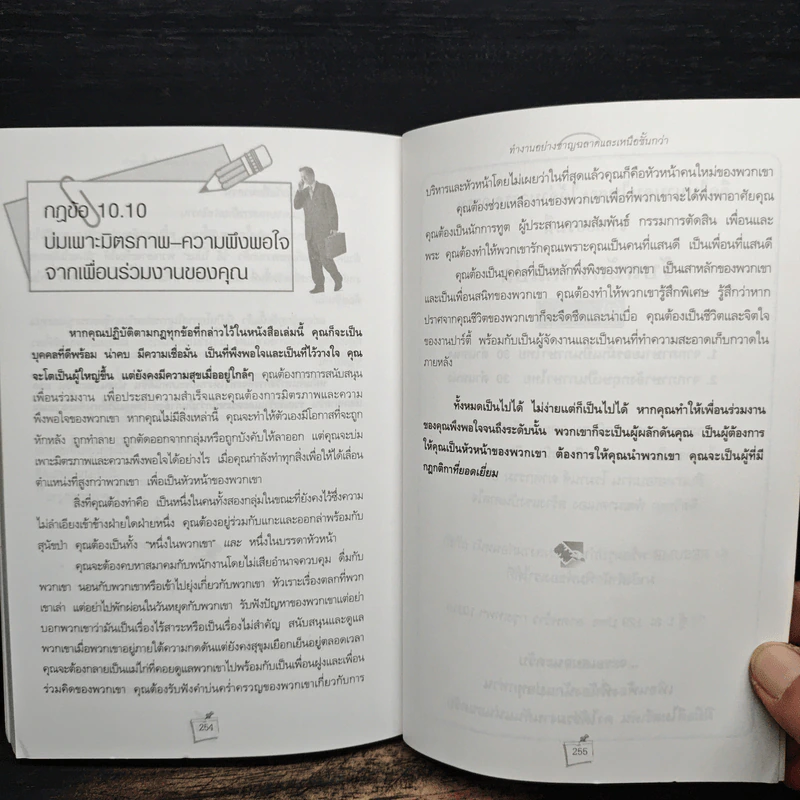 กฎข้อ 10.10
บ่มเพาะมิตรภาพ–ความพึงพอใจ
จากเพื่อนร่วมงานของคุณ
หากคุณปฏิบัติตามกฎทุกข้อที่กล่าวไว้ในหนังสือเล่มนี้ คุณก็จะเป็น
บุคคลที่ดีพร้อม น่าคบ มีความเชื่อมั่น เป็นที่พึงพอใจและเป็นที่ไว้วางใจ คุณ
จะโตเป็นผู้ใหญ่ขึ้น แต่ยังคงมีความสุขเมื่ออยู่ใกล้ๆ คุณต้องการการสนับสนุน
เพื่อนร่วมงาน เพื่อประสบความสำเร็จและคุณต้องการมิตรภาพและความ
พึงพอใจของพวกเขา หากคุณไม่มีสิ่งเหล่านี้ คุณจะทำให้ตัวเองมีโอกาสที่จะถูก
หักหลัง ถูกทำลาย ถูกตัดออกจากกลุ่มหรือถูกบังคับให้ลาออก แต่คุณจะบ่ม
เพาะมิตรภาพและความพึงพอใจได้อย่างไร เมื่อคุณกำลังทำทุกสิ่งเพื่อให้ได้เลื่อน
ตำแหน่งที่สูงกว่าพวกเขา เพื่อเป็นหัวหน้าของพวกเขา
สิ่งที่คุณต้องทำคือ เป็นหนึ่งในคนทั้งสองกลุ่มในขณะที่ยังคงไว้ซึ่งความ
ไม่ลำเอียงเข้าข้างฝ่ายใดฝ่ายหนึ่ง คุณต้องอยู่ร่วมกับแกะและออกล่าพร้อมกับ
สุนัขป่า คุณต้องเป็นทั้ง "หนึ่งในพวกเขา" และ หนึ่งในบรรดาหัวหน้า
คุณจะต้องคบหาสมาคมกับพนักงานโดยไม่เสียอำนาจควบคุม ดื่มกับ
พวกเขา นอนกับพวกเขาหรือเข้าไปยุ่งเกี่ยวกับพวกเขา หัวเราะเรื่องตลกที่พวก
เขาเล่า แต่อย่าไปพักผ่อนในวันหยุดกับพวกเขา รับฟังปัญหาของพวกเขาแต่อย่า
บอกพวกเขาว่ามันเป็นเรื่องไร้สาระหรือเป็นเรื่องไม่สำคัญ สนับสนุนและดูแล
พวกเขาเมื่อพวกเขาอยู่ภายใต้ความกดดันแต่ยังคงสุขุมเยือกเย็นอยู่ตลอดเวลา
คุณจะต้องกลายเป็นแม่ไก่ที่คอยดูแลพวกเขาไปพร้อมกับเป็นเพื่อนฝูงและเพื่อน
ร่วมคิดของพวกเขา คุณต้องรับฟังคำบ่นคร่ำครวญของพวกเขาเกี่ยวกับการ
254
ทำงานอย่างชาญฉลาดและเหนือชั้นกว่า
บริหารและหัวหน้าโดยไม่เผยว่าในที่สุดแล้วคุณก็คือหัวหน้าคนใหม่ของพวกเขา
คุณต้องช่วยเหลืองานของพวกเขาเพื่อที่พวกเขาจะได้พึ่งพาอาศัยคุณ
คุณต้องเป็นนักการทูต ผู้ประสานความสัมพันธ์ กรรมการตัดสิน เพื่อนและ
พระ คุณต้องทำให้พวกเขารักคุณเพราะคุณเป็นคนที่แสนดี เป็นเพื่อนที่แสนดี
คุณต้องเป็นบุคคลที่เป็นหลักพึ่งพิงของพวกเขา เป็นเสาหลักของพวกเขา
และเป็นเพื่อนสนิทของพวกเขา คุณต้องทำให้พวกเขารู้สึกพิเศษ รู้สึกว่าหาก
ปราศจากคุณชีวิตของพวกเขาก็จะจืดชืดและน่าเบื่อ คุณต้องเป็นชีวิตและจิตใจ
ของงานปาร์ตี้ พร้อมกับเป็นผู้จัดงานและเป็นคนที่ทำความสะอาดเก็บกวาดใน
ภายหลัง
ทั้งหมดเป็นไปได้ ไม่ง่ายแต่ก็เป็นไปได้ หากคุณทำให้เพื่อนร่วมงาน
ของคุณพึงพอใจจนถึงระดับนั้น พวกเขาก็จะเป็นผู้ผลักดันคุณ เป็นผู้ต้องการ
ให้คุณเป็นหัวหน้าของพวกเขา ต้องการให้คุณนำพวกเขา คุณจะเป็นผู้ที่มี
กฎกติกาที่ยอดเยี่ยม
255